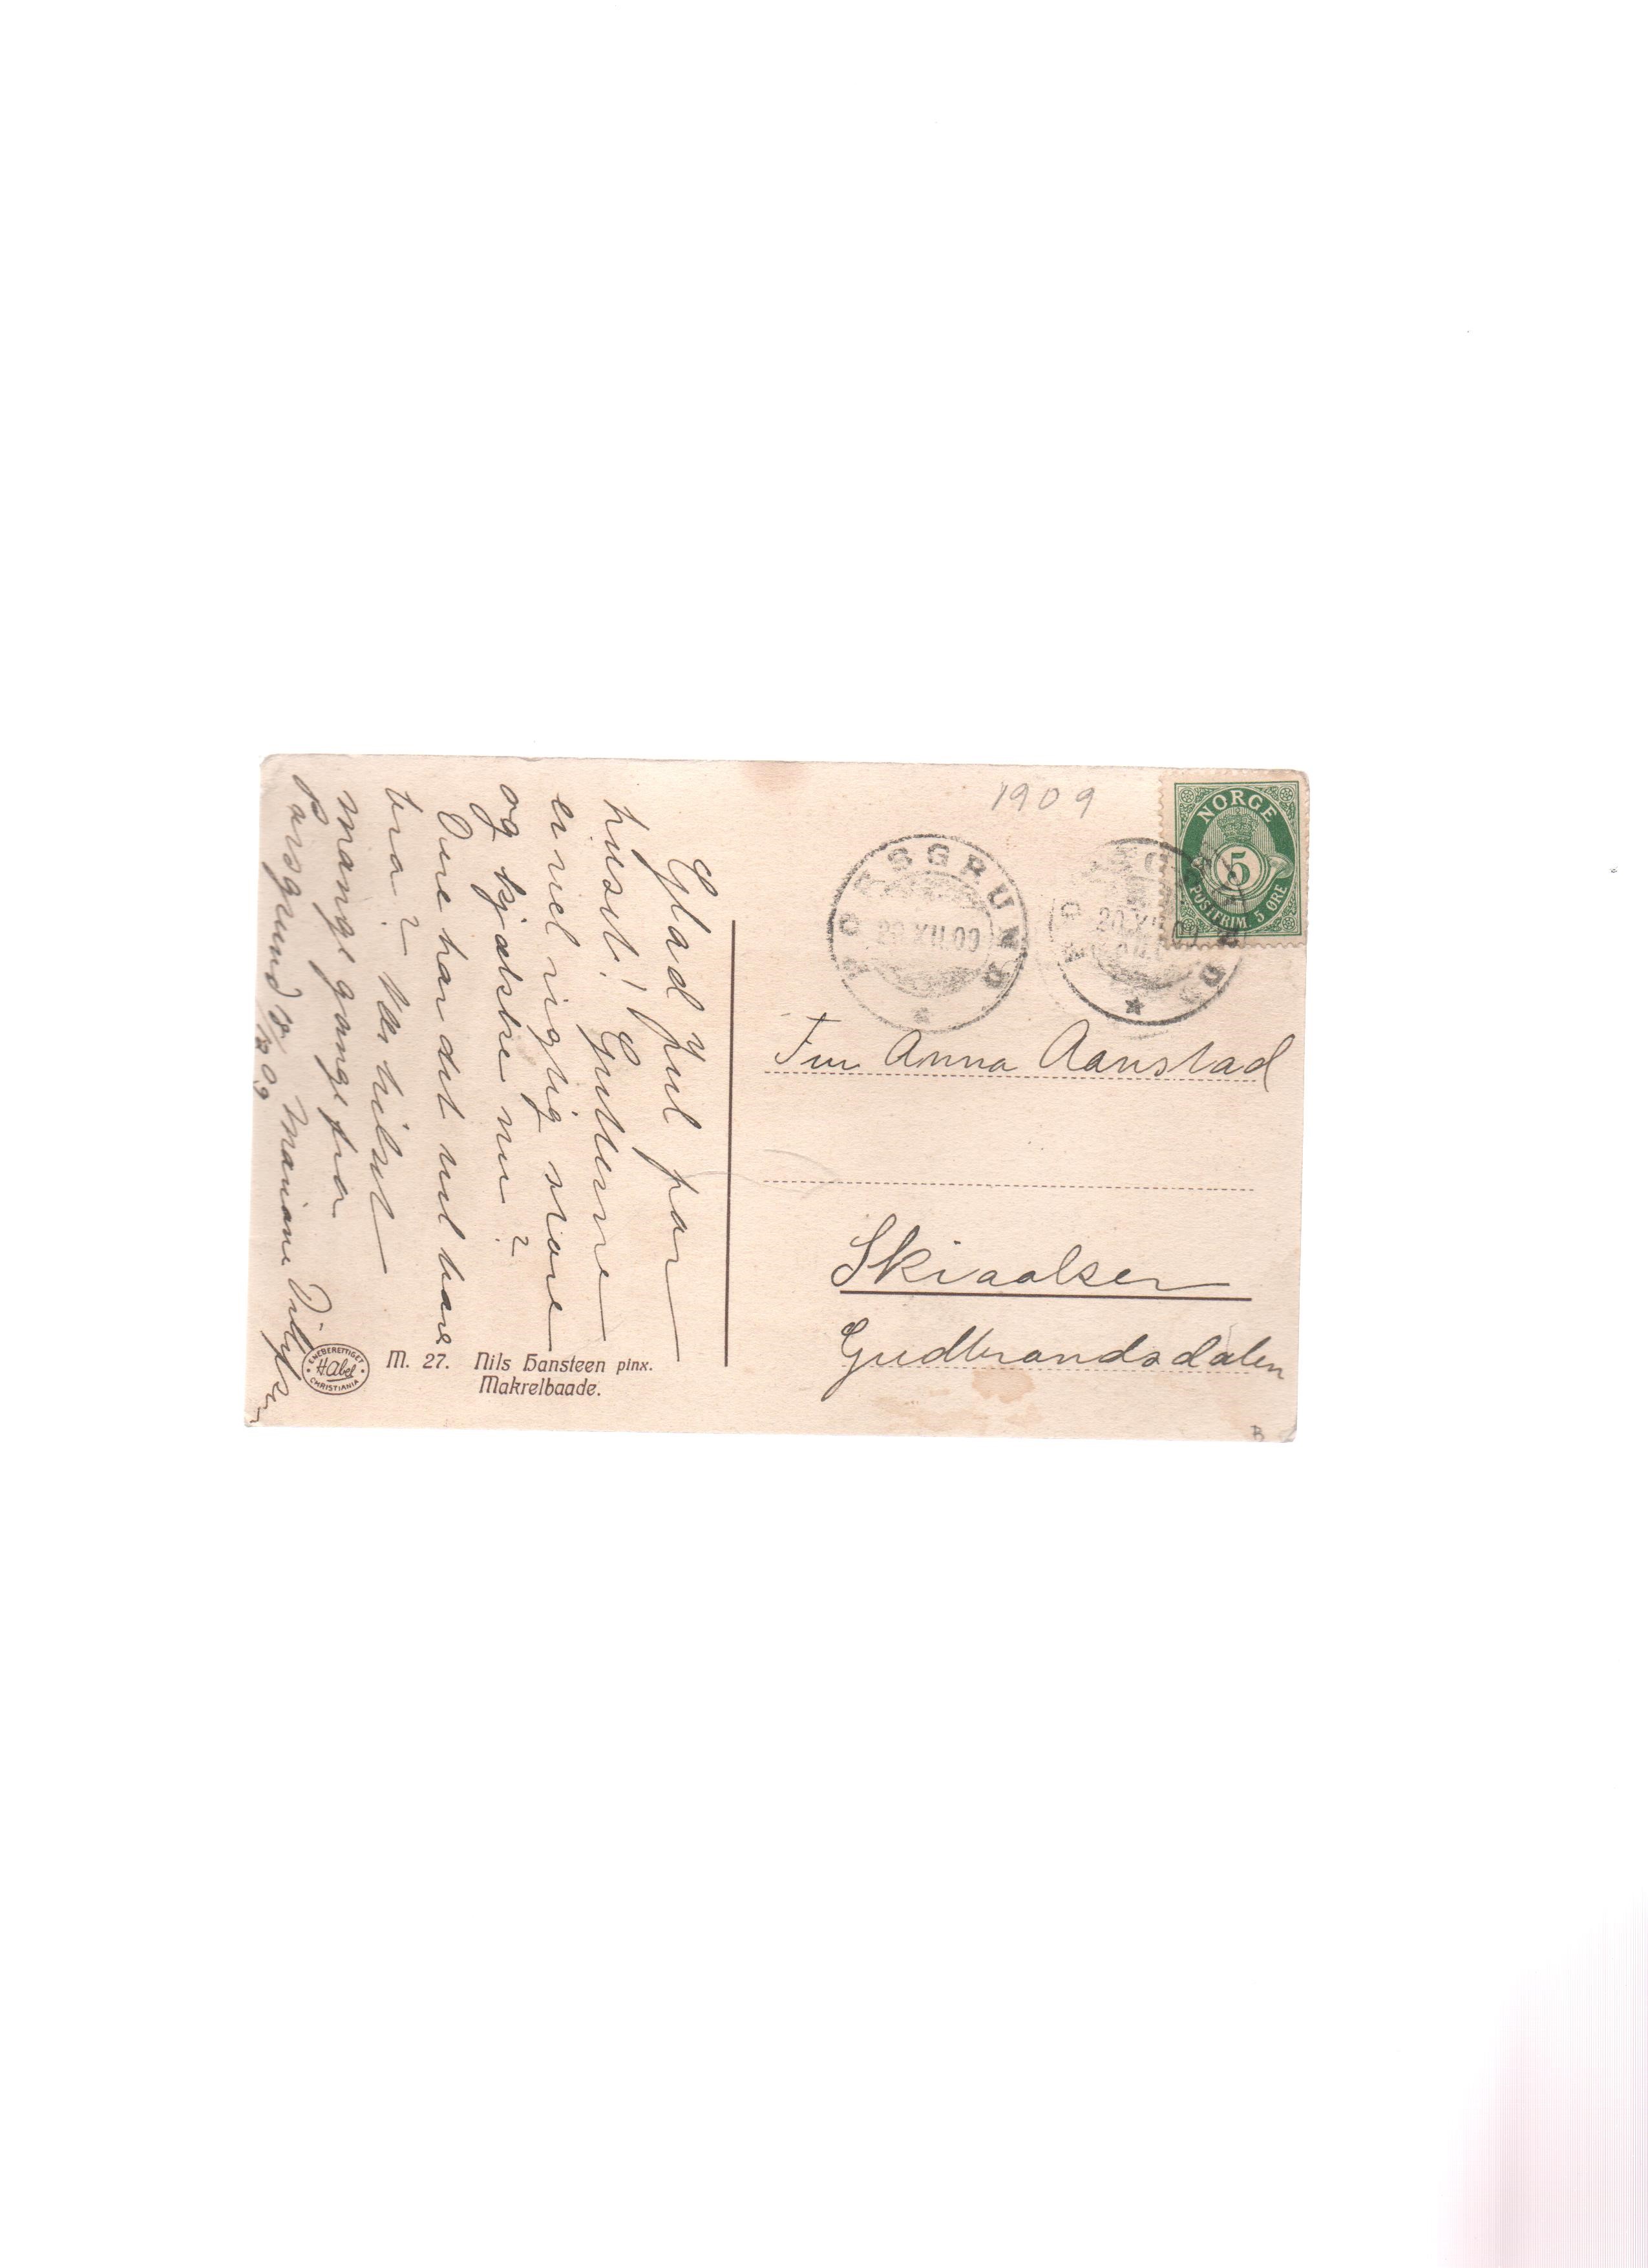 Glad Jul paa
huset! Guttene
er vel rigtig store
og kjække nu?
Dere har det vel bare
bra? Vær hilset
mange gange fra
Mariane
Porsgrund 18/12 09
1909
NORGE
5
POSTFRIM 5 ØRE
PORSGRUND
20.XII.09
PORSGRUND
20.XII.09
Fru Anna Aanstad
Skiaaker
Gudbrandsdalen
ENEBERETTIGET
Habel
CHRISTIANIA
M. 27. Nils Hansteen pinx.
Makrelbaade.
B